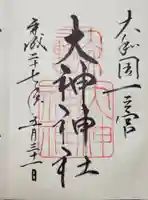 大和国一之宮
大神神社
平成二十七年五月三十一日